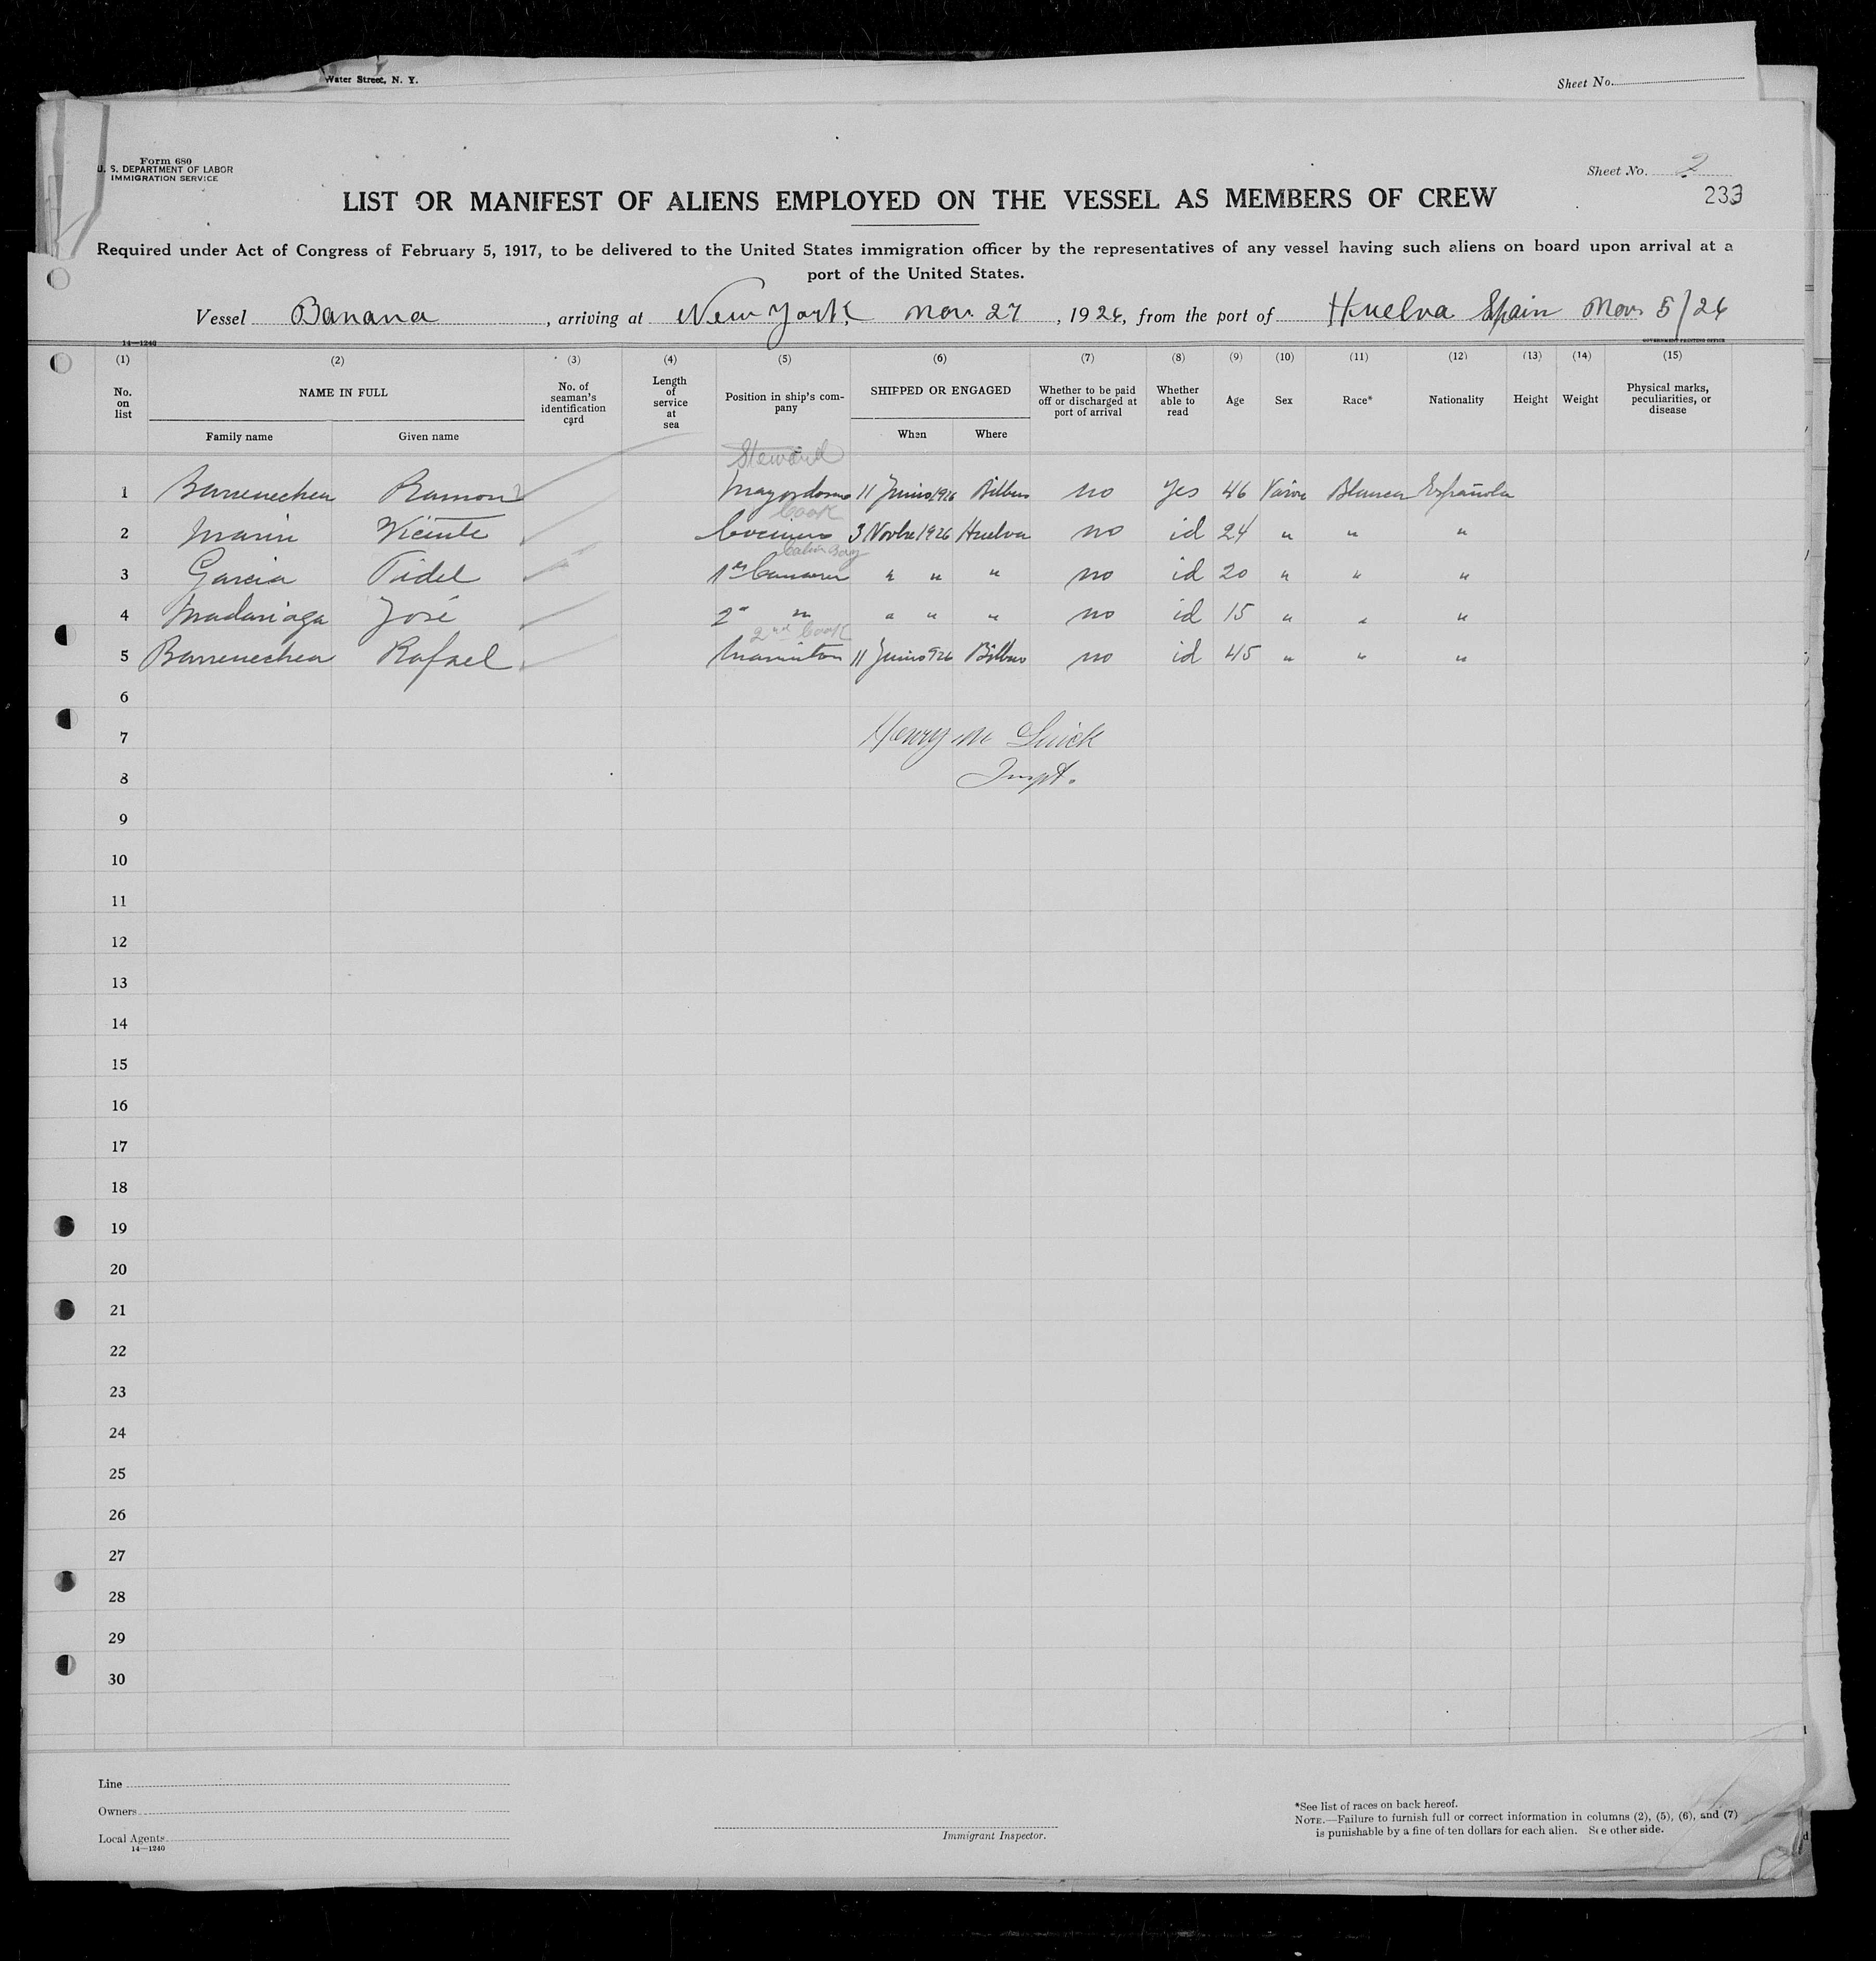 Water Street, N. Y.
Sheet No.
Form 680
U. S. DEPARTMENT OF LABOR
IMMIGRATION SERVICE
Sheet No. 2
233
LIST OR MANIFEST OF ALIENS EMPLOYED ON THE VESSEL AS MEMBERS OF CREW
Required under Act of Congress of February 5, 1917, to be delivered to the United States immigration officer by the representatives of any vessel having such aliens on board upon arrival at a
port of the United States.
Vessel Banana, arriving at New York, Nov. 27, 1926, from the port of Huelva Spain Nov 5/26
14—1240
GOVERNMENT PRINTING OFFICE
(1) (2) (3) (4) (5) (6) (7) (8) (9) (10) (11) (12) (13) (14) (15)
No. on list
NAME IN FULL
Family name
Given name
No. of seaman's identification card
Length of service at sea
Position in ship's company
SHIPPED OR ENGAGED
When
Where
Whether to be paid off or discharged at port of arrival
Whether able to read
Age
Sex
Race*
Nationality
Height
Weight
Physical marks, peculiarities, or disease
Steward
1 Barrenechea Ramon Mayordomo 11 Junio 1926 Bilbao no yes 46 Varon Blanca Española
Cook
2 Marin Vicente Cocinero 3 Novbe 1926 Huelva no id 24 " " "
Cabin Boy
3 Garcia Fidel 1er Camarero " " " no id 20 " " "
4 Madariaga José 2o " " " " no id 15 " " "
2nd Cook
5 Barrenechea Rafael Marmiton 11 Junio 926 Bilbao no id 45 " " "
6
7 Henry M
8 Inspt.
9
10
11
12
13
14
15
16
17
18
19
20
21
22
23
24
25
26
27
28
29
30
Line
Owners
Local Agents
14—1240
Immigrant Inspector.
*See list of races on back hereof.
NOTE.—Failure to furnish full or correct information in columns (2), (5), (6), and (7)
is punishable by a fine of ten dollars for each alien. See other side.